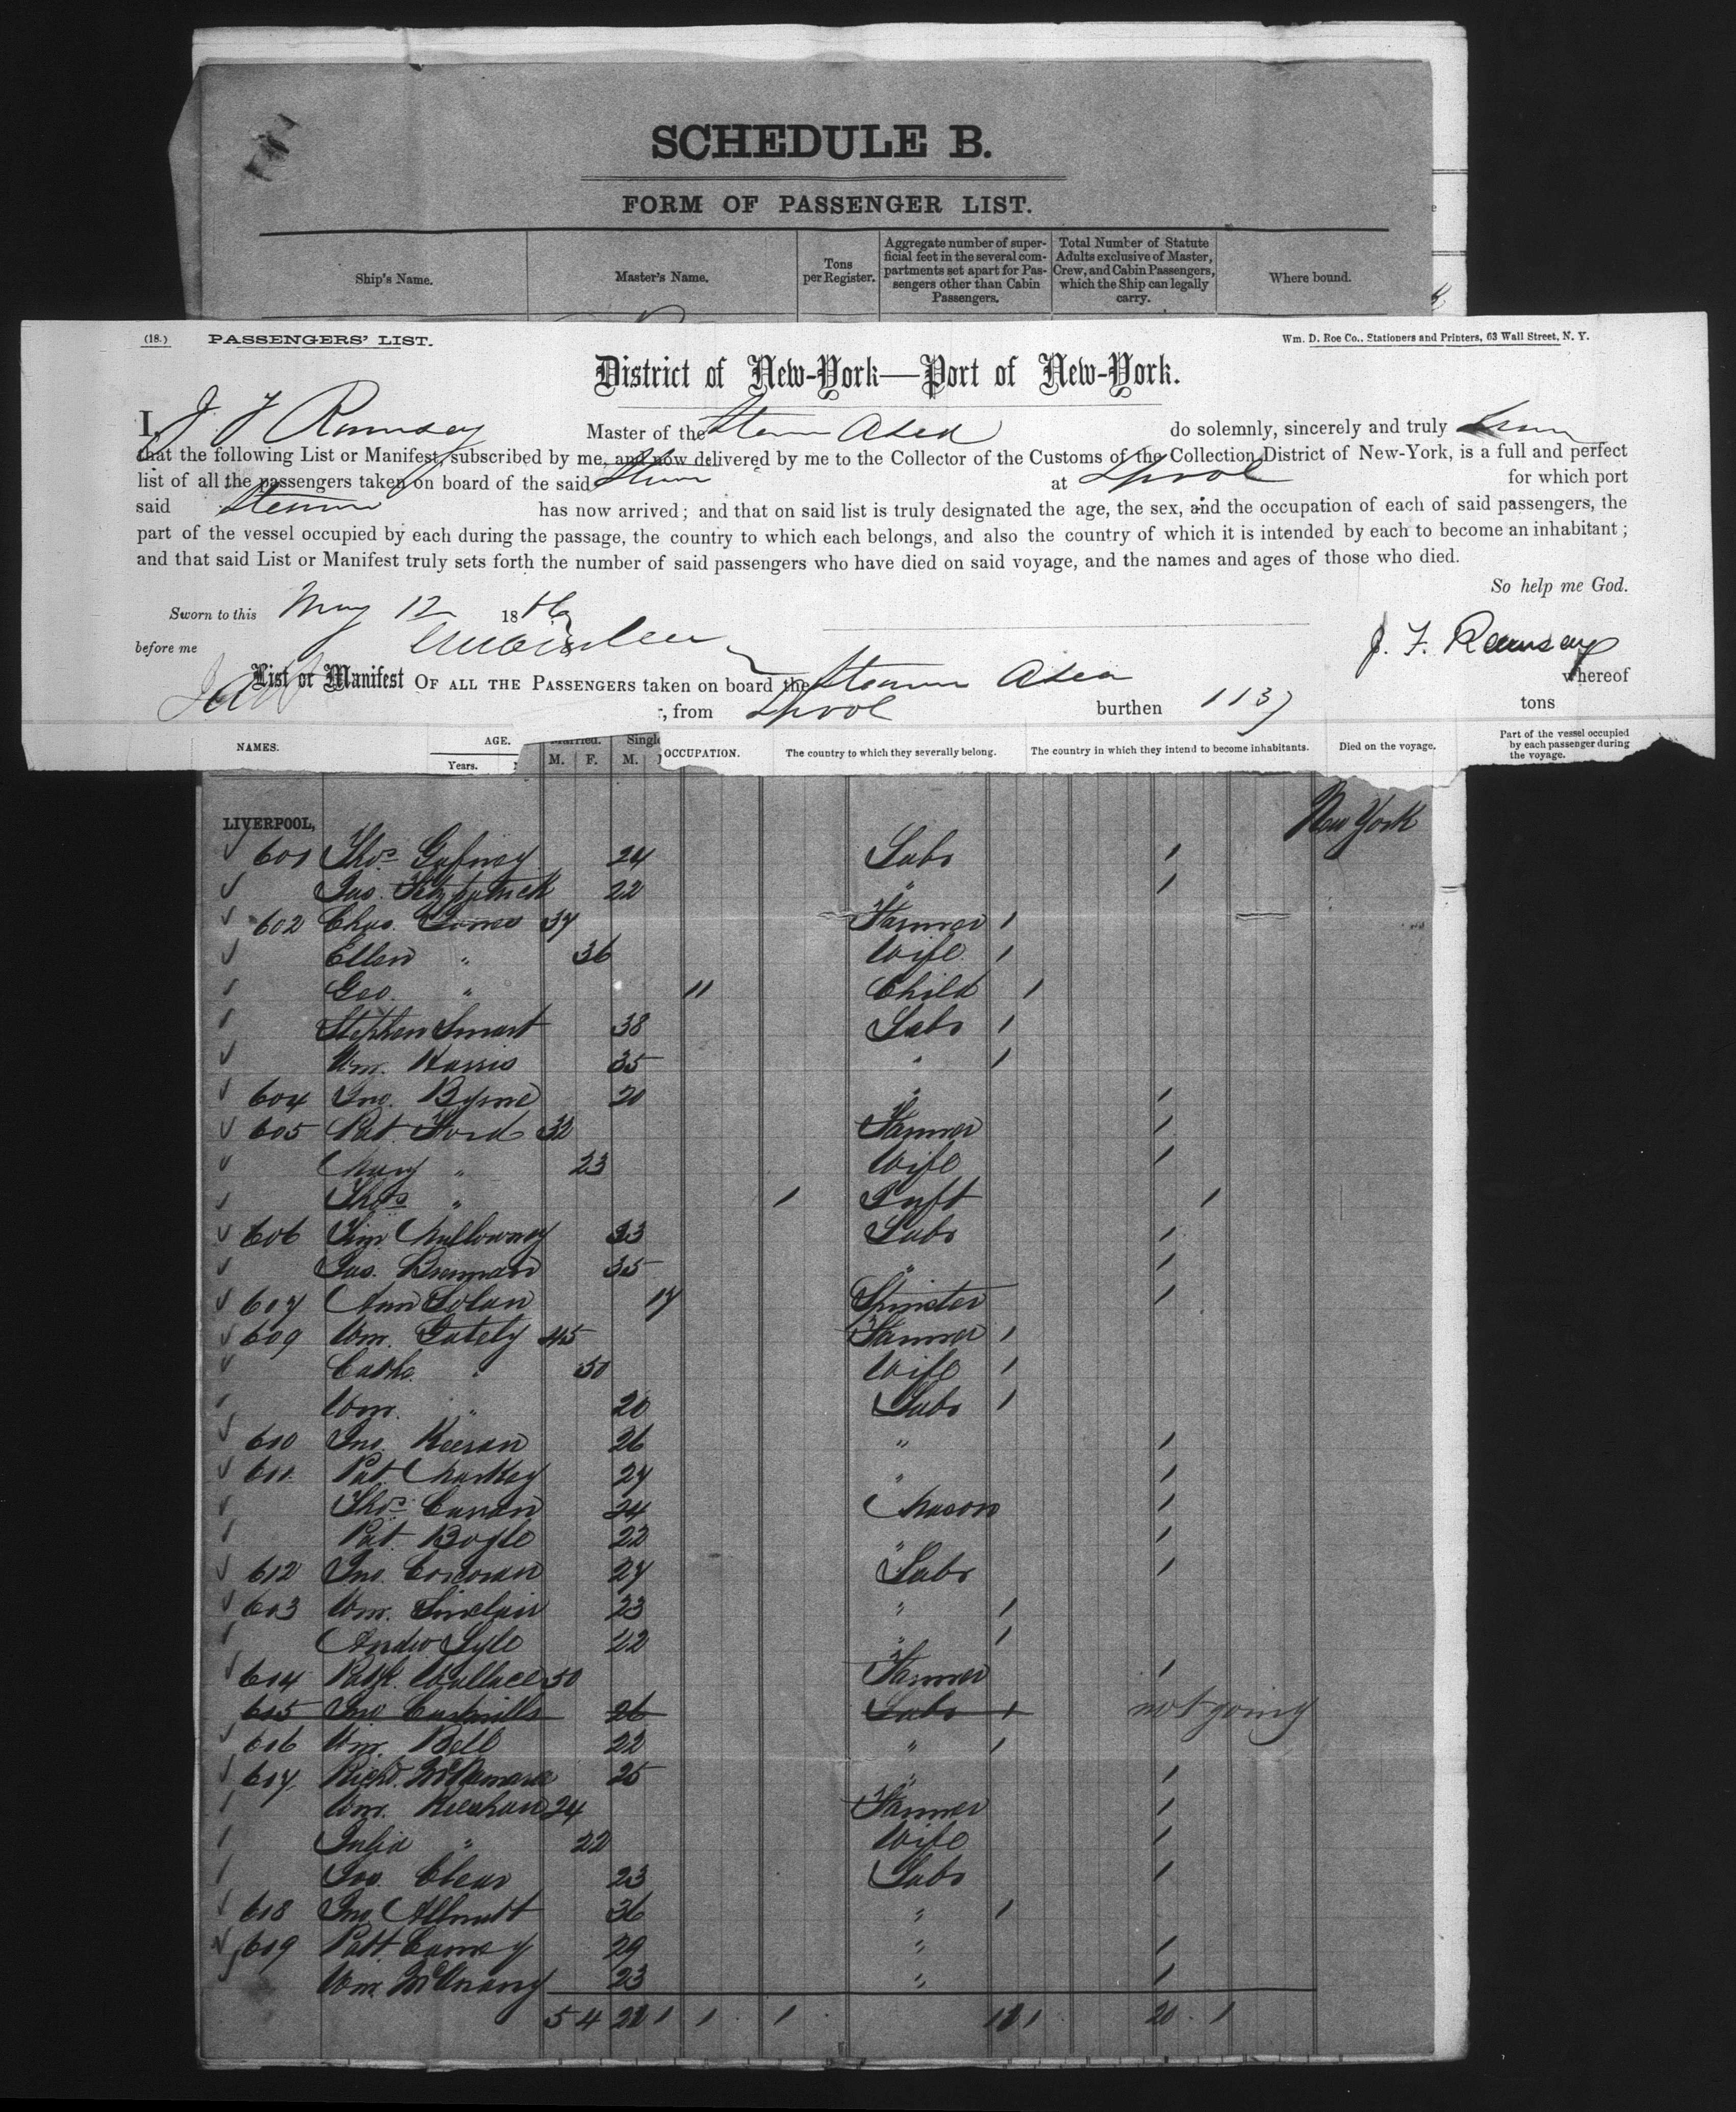 SCHEDULE B.
FORM OF PASSENGER LIST.
Ship's Name. Master's Name. Tons per Register. Aggregate number of superficial feet in the several compartments set apart for Passengers other than Cabin Passengers. Total Number of Statute Adults exclusive of Master, Crew, and Cabin Passengers, which the Ship can legally carry. Where bound.
(18.) PASSENGERS' LIST. Wm. D. Roe Co., Stationers and Printers, 63 Wall Street, N. Y.
District of New-York—Port of New-York.
I, J F Ramsay Master of the do solemnly, sincerely and truly
that the following List or Manifest, subscribed by me, and now delivered by me to the Collector of the Customs of the Collection District of New-York, is a full and perfect
list of all the passengers taken on board of the said at Lpool for which port
said Steamer has now arrived; and that on said list is truly designated the age, the sex, and the occupation of each of said passengers, the
part of the vessel occupied by each during the passage, the country to which each belongs, and also the country of which it is intended by each to become an inhabitant;
and that said List or Manifest truly sets forth the number of said passengers who have died on said voyage, and the names and ages of those who died.
So help me God.
Sworn to this May 12 18
before me J. F. Ramsay
List or Manifest OF ALL THE PASSENGERS taken on board the Steamer whereof
, from Lpool burthen 1137 tons
NAMES. AGE. Years. Married. M. F. Single M. OCCUPATION. The country to which they severally belong. The country in which they intend to become inhabitants. Died on the voyage. Part of the vessel occupied by each passenger during the voyage.
LIVERPOOL, New York
601 Thos Gafney 24 Labr
Jas. Fitzpatrick 22 "
602 Chas. Jones 37 Farmer 1
Ellen " 36 Wife 1
Geo. " 11 Child 1
Stephen Smart 38 Labr 1
Wm. Harris 35 " 1
604 Jno. Byrne 20 " 1
605 Pat. Ford 32 Farmer 1
Mary " 23 Wife 1
Thos " 1 Inft 1
606 Tim Mullowney 33 Labr 1
Jas. Brennan 35 " 1
607 Ann Dolan 17 Spinster 1
609 Wm. Gately 45 Farmer 1
Cathe. " 50 Wife 1
Wm. " 20 Labr 1
610 Jno. Keeran 26 " 1
611 Pat. Markey 27 " 1
Thos Curran 24 Mason 1
Pat. Boyle 22 " 1
612 Jno. Corcoran 27 Labr 1
603 Wm. Sinclair 23 " 1
Andw Lyle 22 " 1
614 Patk. Wallace 50 Farmer 1
615 Jno 26 Labr 1 not going
616 Wm. Bell 22 " 1
617 Richd. McNamara 25 " 1
Wm. Keeshan 24 Farmer 1
Julia " 22 Wife 1
Jno. 23 Labr 1
618 Jno Allnutt 36 " 1
619 Patt Carney 29 " 1
Wm. 23 " 1
5 4 22 1 1 1 12 1 20 1